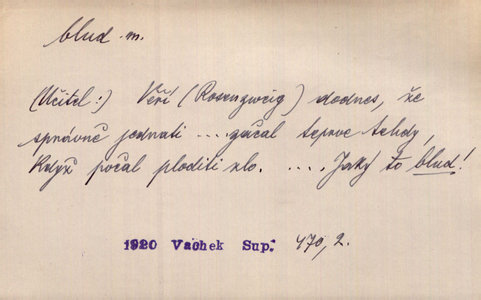 blud m.
(Učitel:) Věří (Rosenzweig) dodnes, že
správně jednati .... začal teprve tehdy,
když počal ploditi zlo. .... Jaký to blud!
1920 Vachek Sup. 470, 2.